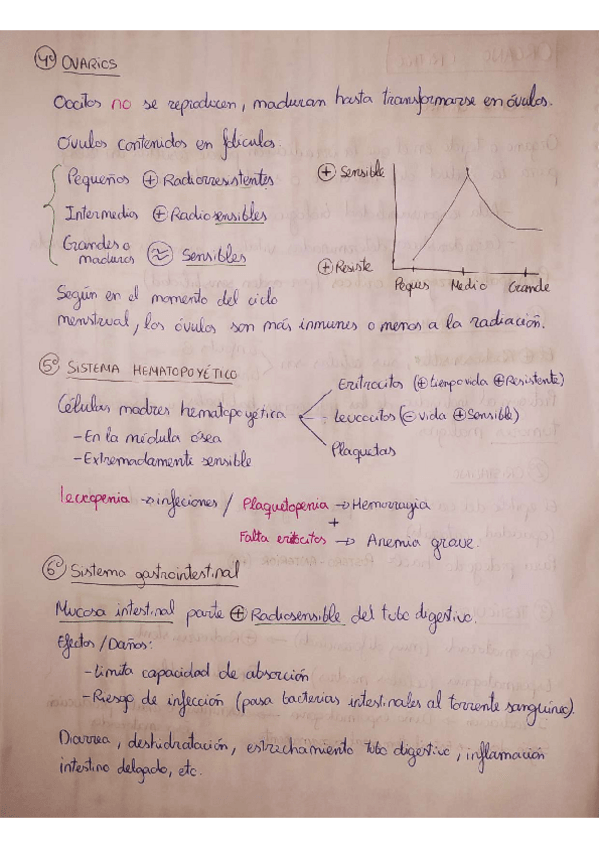 4º OVARIOS
Oocitos no se reproducen, maduran hasta transformarse en óvulos.
Óvulos contenidos en folículos.
Pequeños ⊕ Radiorresistentes
Intermedios ⊕ Radiosensibles
Grandes o
maduros ≈ Sensibles
⊕ Sensible
⊕ Resiste
Peques Medio Grande
Según en el momento del ciclo
menstrual, los óvulos son más inmunes o menos a la radiación.
5º SISTEMA HEMATOPOYÉTICO
Células madres hematopoyética
Eritrocitos (⊕ tiempo vida ⊕ Resistente)
Leucocitos (⊖ vida ⊕ Sensible)
Plaquetas
- En la médula ósea
- Extremadamente sensible
leucopenia → infeciones / Plaquetopenia → Hemorragia
+
Falta eritocitos → Anemia grave.
6º Sistema gastrointestinal
Mucosa intestinal parte ⊕ Radiosensible del tubo digestivo.
Efectos / Daños:
- Limita capacidad de absorción
- Riesgo de infección (pasa bacterias intestinales al torrente sanguíneo).
Diarrea, deshidratación, estrechamiento tubo digestivo, inflamación
intestino delgado, etc.